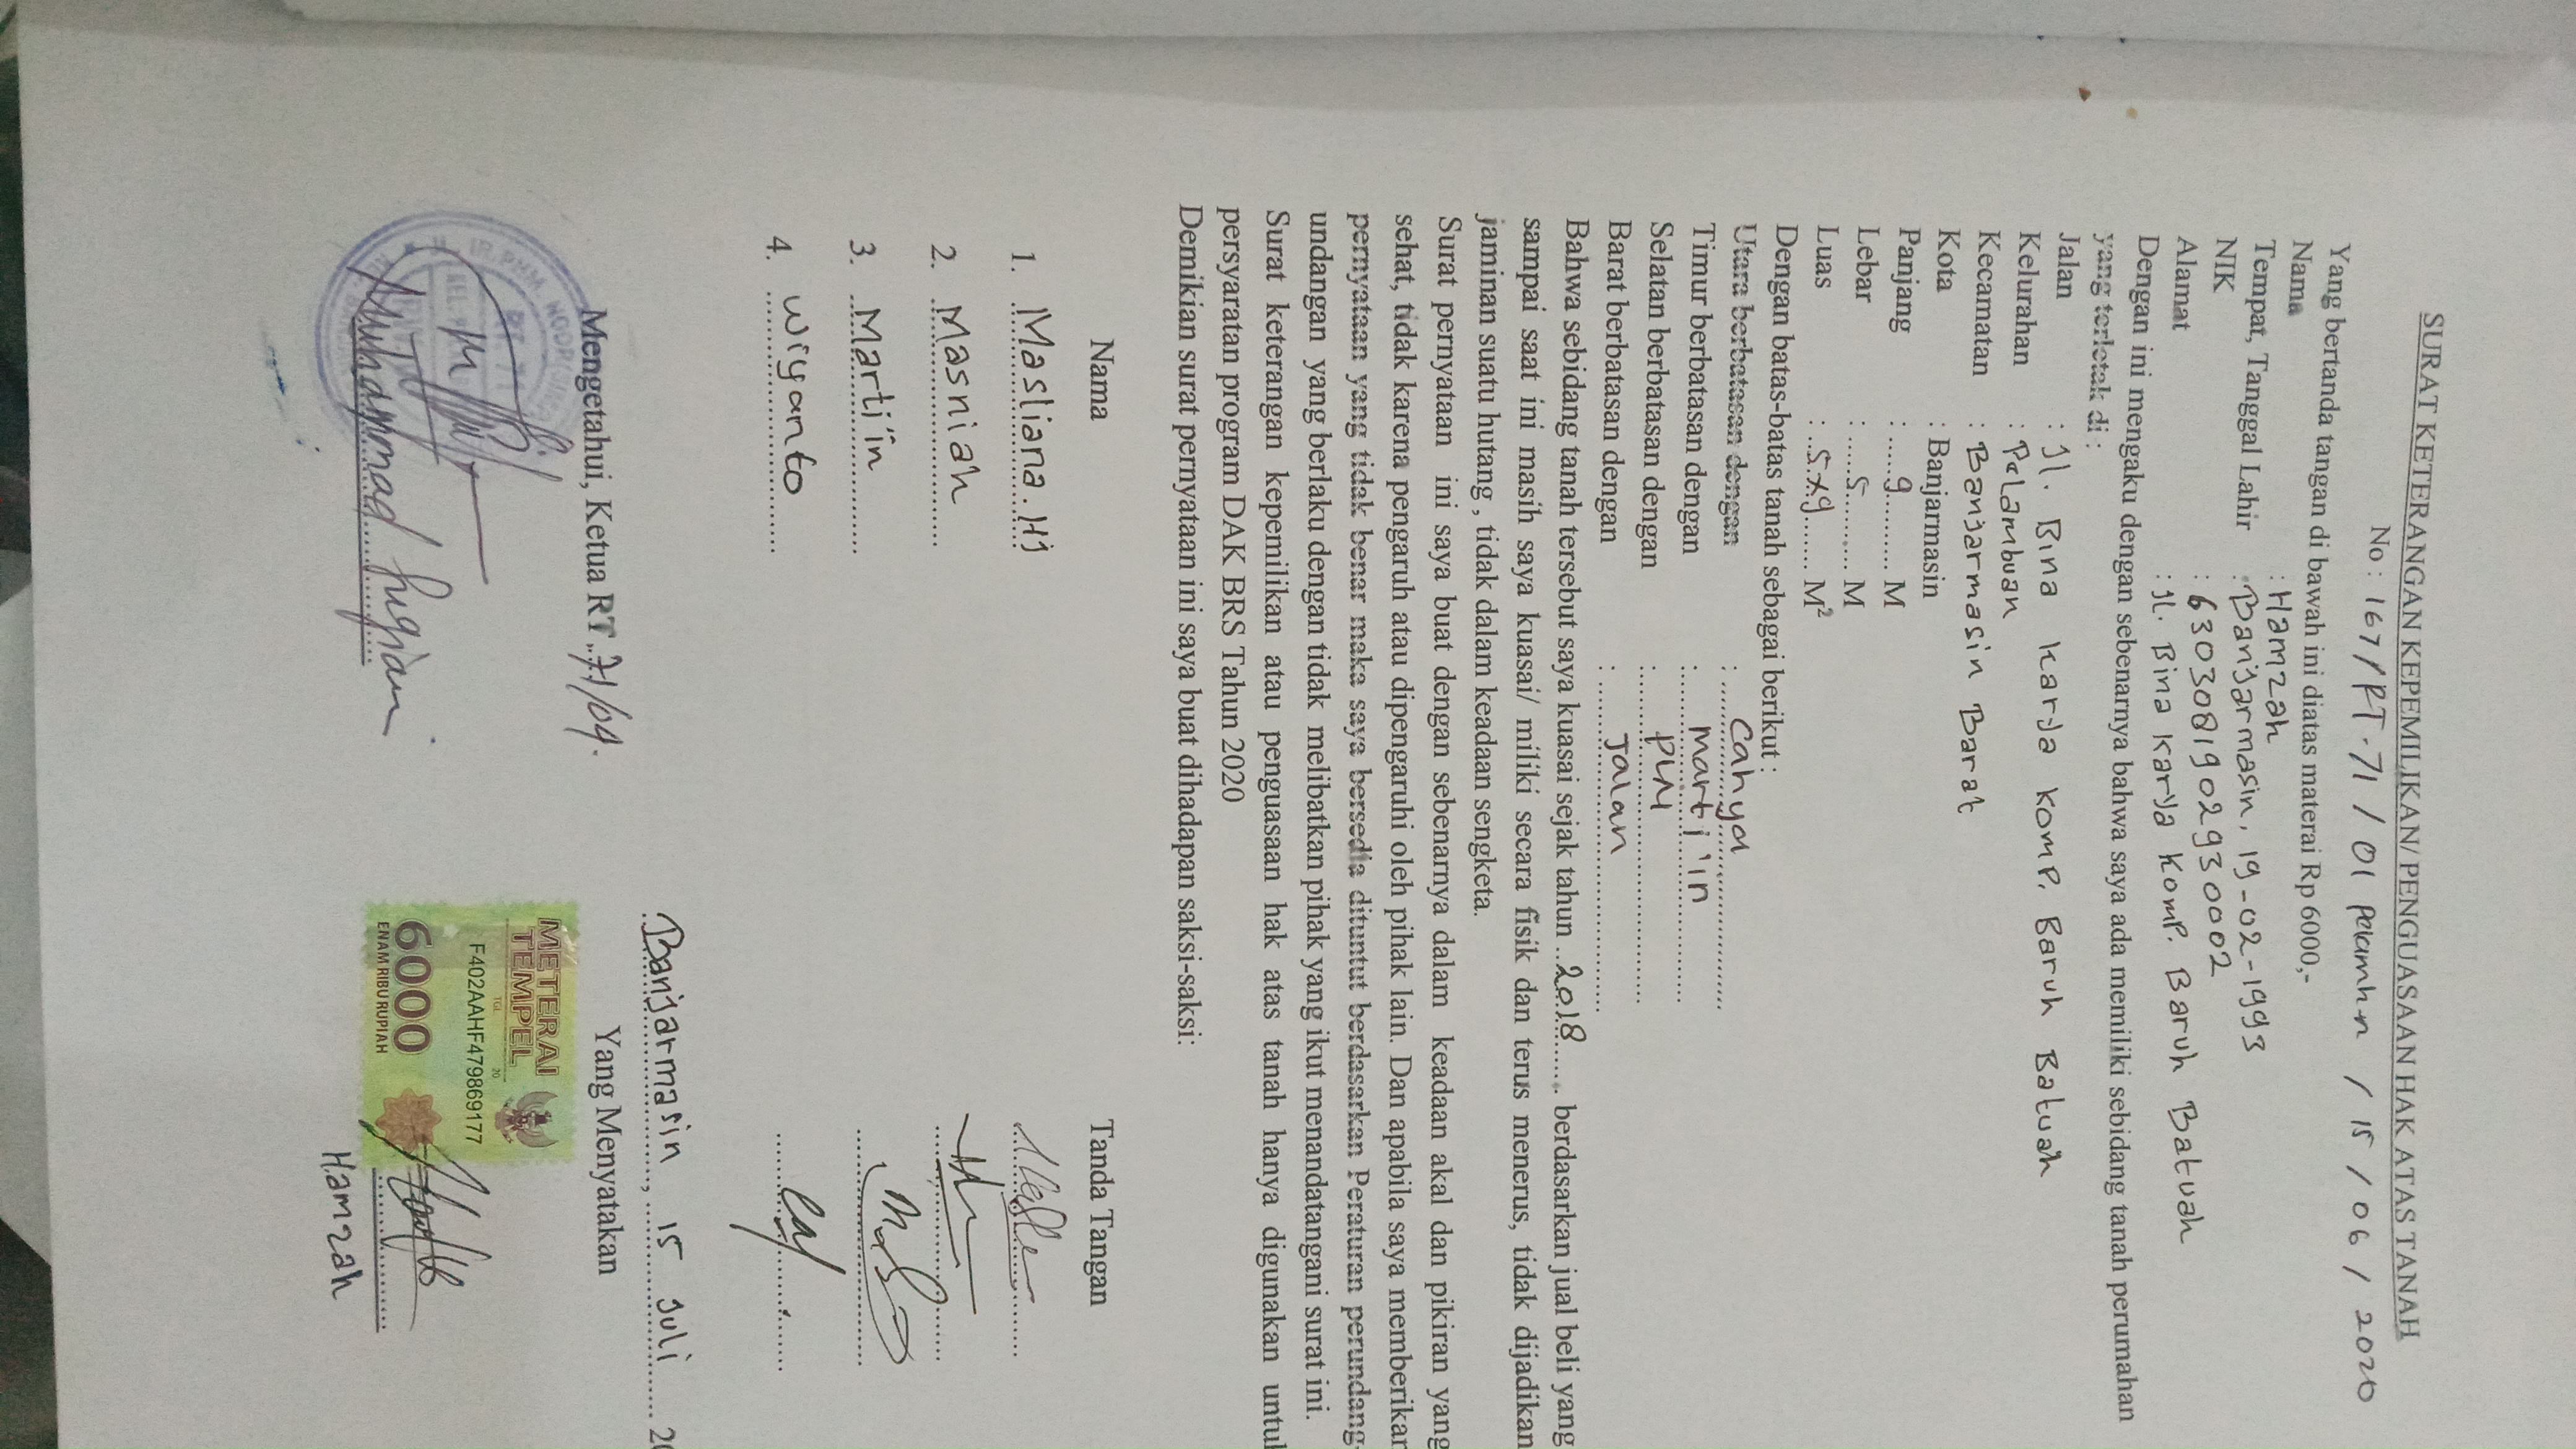 SURAT KETERANGAN KEPEMILIKAN/ PENGUASAAN HAK ATAS TANAH
No : 167 / RT. 71 / 01 / 15 / 06 / 2020
Yang bertanda tangan di bawah ini diatas materai Rp 6000,-
Nama : Hamzah
Tempat, Tanggal Lahir : Banjarmasin, 19-02-1993
NIK : 6303081902930002
Alamat : Jl. Bina Karya Komp. Baruh Batuah
Dengan ini mengaku dengan sebenarnya bahwa saya ada memiliki sebidang tanah perumahan
yang terletak di :
Jalan : Jl. Bina Karya Komp. Baruh Batuah
Kelurahan : Pelambuan
Kecamatan : Banjarmasin Barat
Kota : Banjarmasin
Panjang : ......9.......... M
Lebar : ......5.......... M
Luas : ..5x9...... M²
Dengan batas-batas tanah sebagai berikut :
Utara berbatasan dengan : Cahya
Timur berbatasan dengan : Marti'in
Selatan berbatasan dengan :
Barat berbatasan dengan : Jalan
Bahwa sebidang tanah tersebut saya kuasai sejak tahun ..2018...... berdasarkan jual beli yang
sampai saat ini masih saya kuasai/ miliki secara fisik dan terus menerus, tidak dijadikan
jaminan suatu hutang , tidak dalam keadaan sengketa.
Surat pernyataan ini saya buat dengan sebenarnya dalam keadaan akal dan pikiran yang
sehat, tidak karena pengaruh atau dipengaruhi oleh pihak lain. Dan apabila saya memberikan
pernyataan yang tidak benar maka saya bersedia dituntut berdasarkan Peraturan perundang-
undangan yang berlaku dengan tidak melibatkan pihak yang ikut menandatangani surat ini.
Surat keterangan kepemilikan atau penguasaan hak atas tanah hanya digunakan untuk
persyaratan program DAK BRS Tahun 2020
Demikian surat pernyataan ini saya buat dihadapan saksi-saksi:
Nama Tanda Tangan
1. Masliana. Hj
2. Masniah
3. Marti'in
4. Wiyanto
Banjarmasin, 15 Juli 20
Mengetahui, Ketua RT 71/04. Yang Menyatakan
RT 71
METERAI
TEMPEL
TGL 20
F402AAHF479869177
6000
ENAM RIBU RUPIAH
Muhammad
Hamzah